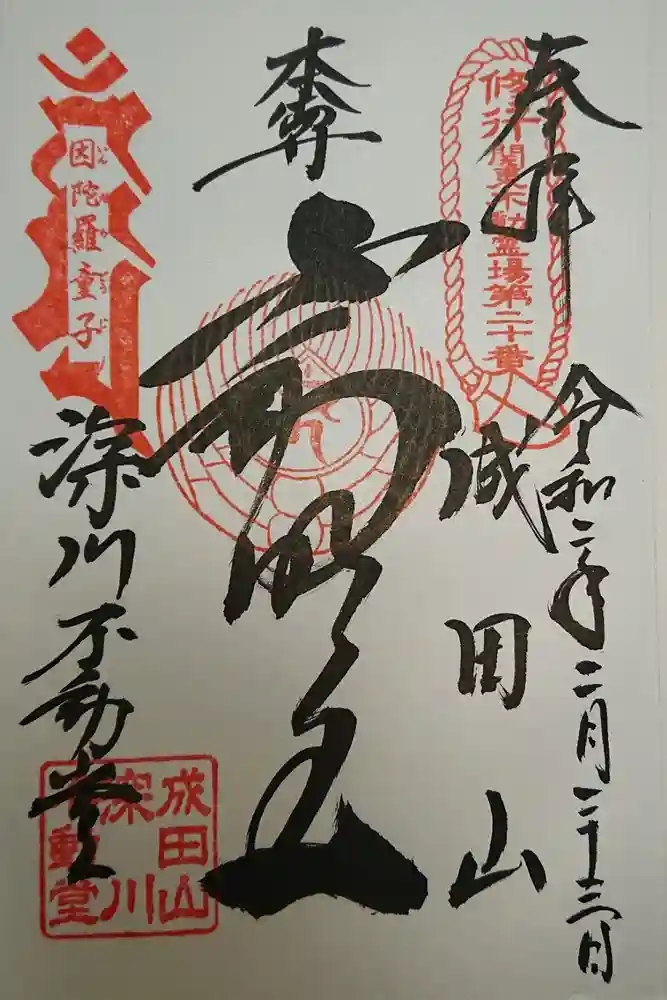 奉拝
修行 関東不動霊場第二十番
令和二年二月二十三日
成田山
本尊
不動明王
因陀羅童子
いんだらどうじ
深川不動堂
成田山
深川
不動堂